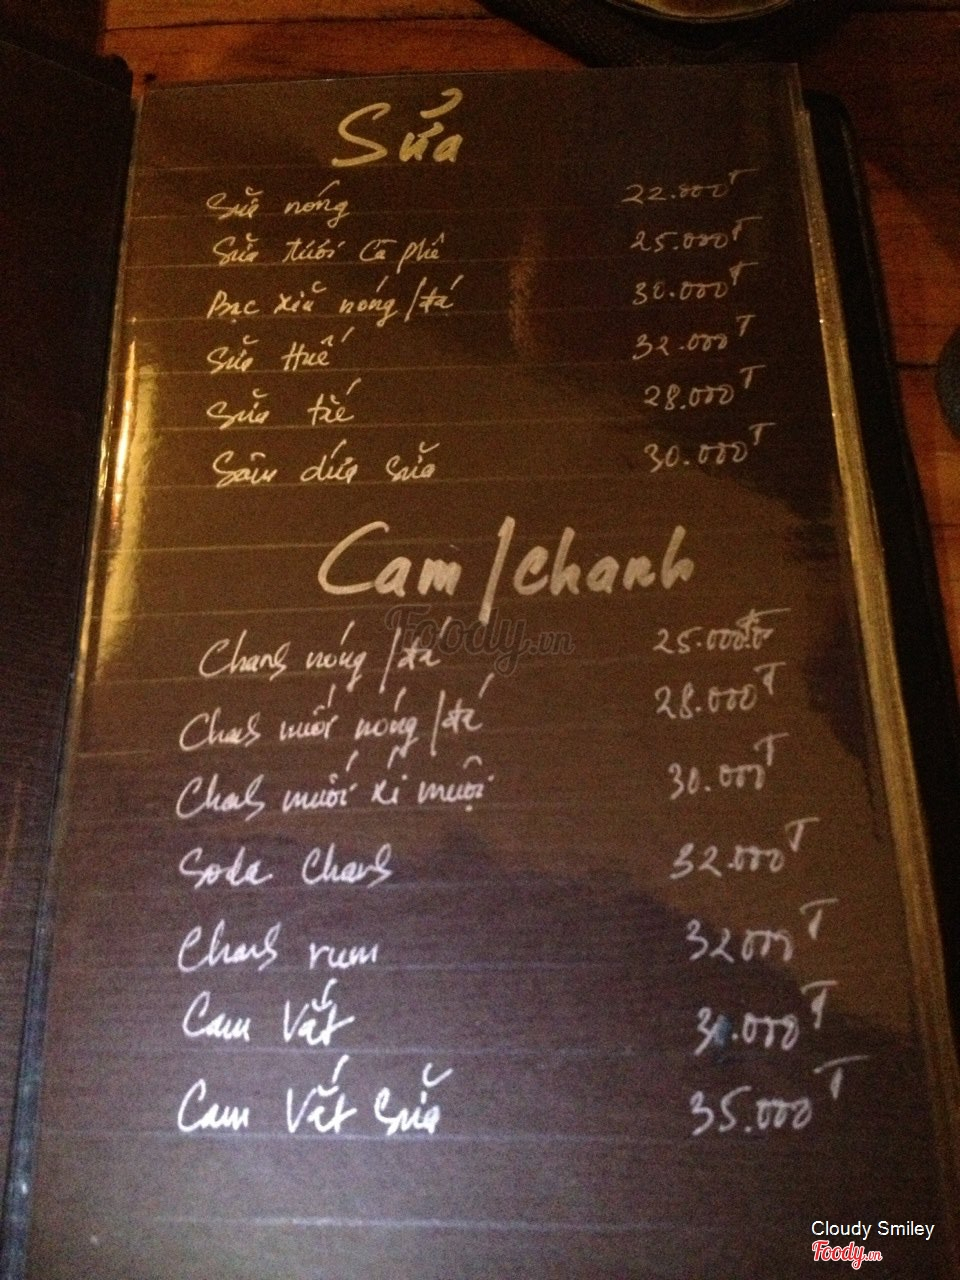 Sửa
Sữa nóng 22.000đ
Sữa tươi cà phê 25.000đ
Bạc xỉu nóng/đá 30.000đ
Sữa Huế 32.000đ
Sữa tắc 28.000đ
Sâm dứa sữa 30.000đ
Cam/chanh
Chanh nóng/đá 25.000đ
Chanh muối nóng/đá 28.000đ
Chanh muối xí muội 30.000đ
Soda Chanh 32.000đ
Chanh rum 32000đ
Cam Vắt 30.000đ
Cam Vắt Sữa 35.000đ
Foody.vn
Cloudy Smiley
Foody.vn